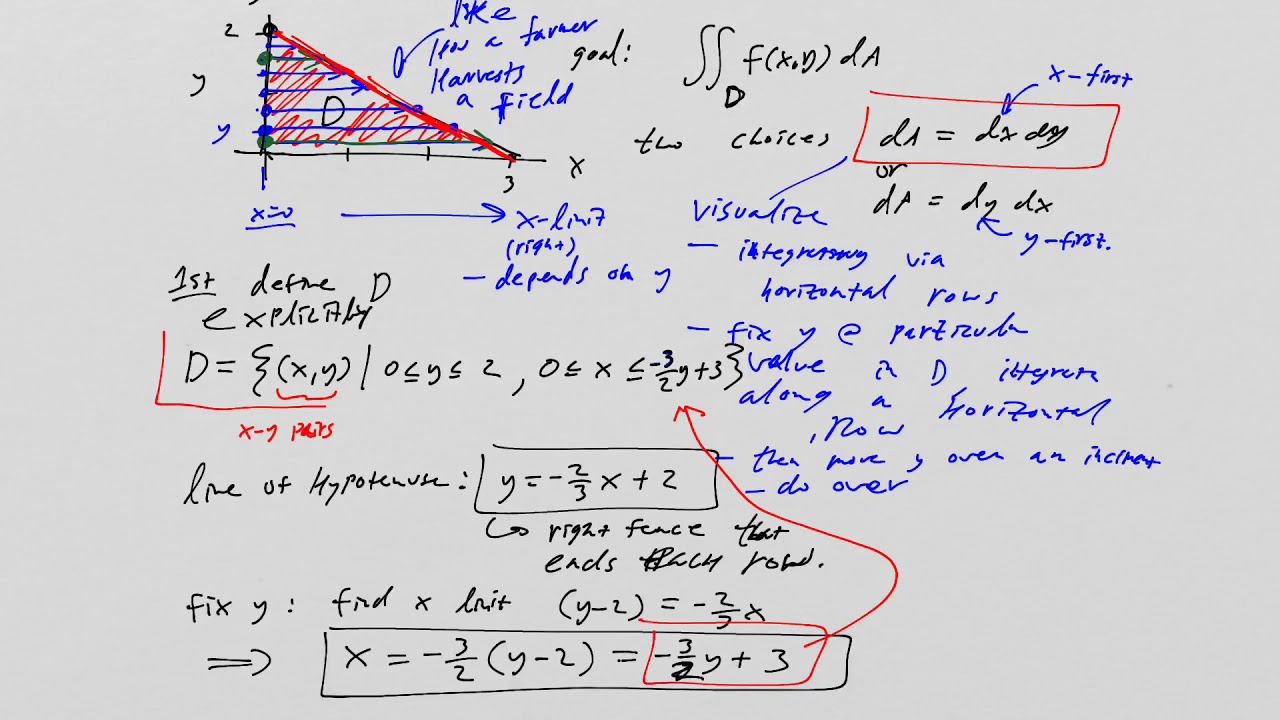 2
like
how a farmer
Harvests
a field
y
D
y
x
3
x=0
x-limit
(right)
- depends on y
goal: ∬_D f(x,y) dA
x-first
two choices dA = dx dy
or
dA = dy dx
y-first.
visualize
- integrating via
horizontal rows
- fix y @ particular
value in D integrate
along a horizontal
row
- then move y over an increment
- do over
1st define D
explicitly
D = {(x,y) | 0 ≤ y ≤ 2 , 0 ≤ x ≤ -3/2 y + 3}
x-y pairs
line of Hypotenuse: y = -2/3 x + 2
↳ right fence that
ends each row.
fix y : find x limit (y-2) = -2/3 x
⟹ x = -3/2 (y-2) = -3/2 y + 3